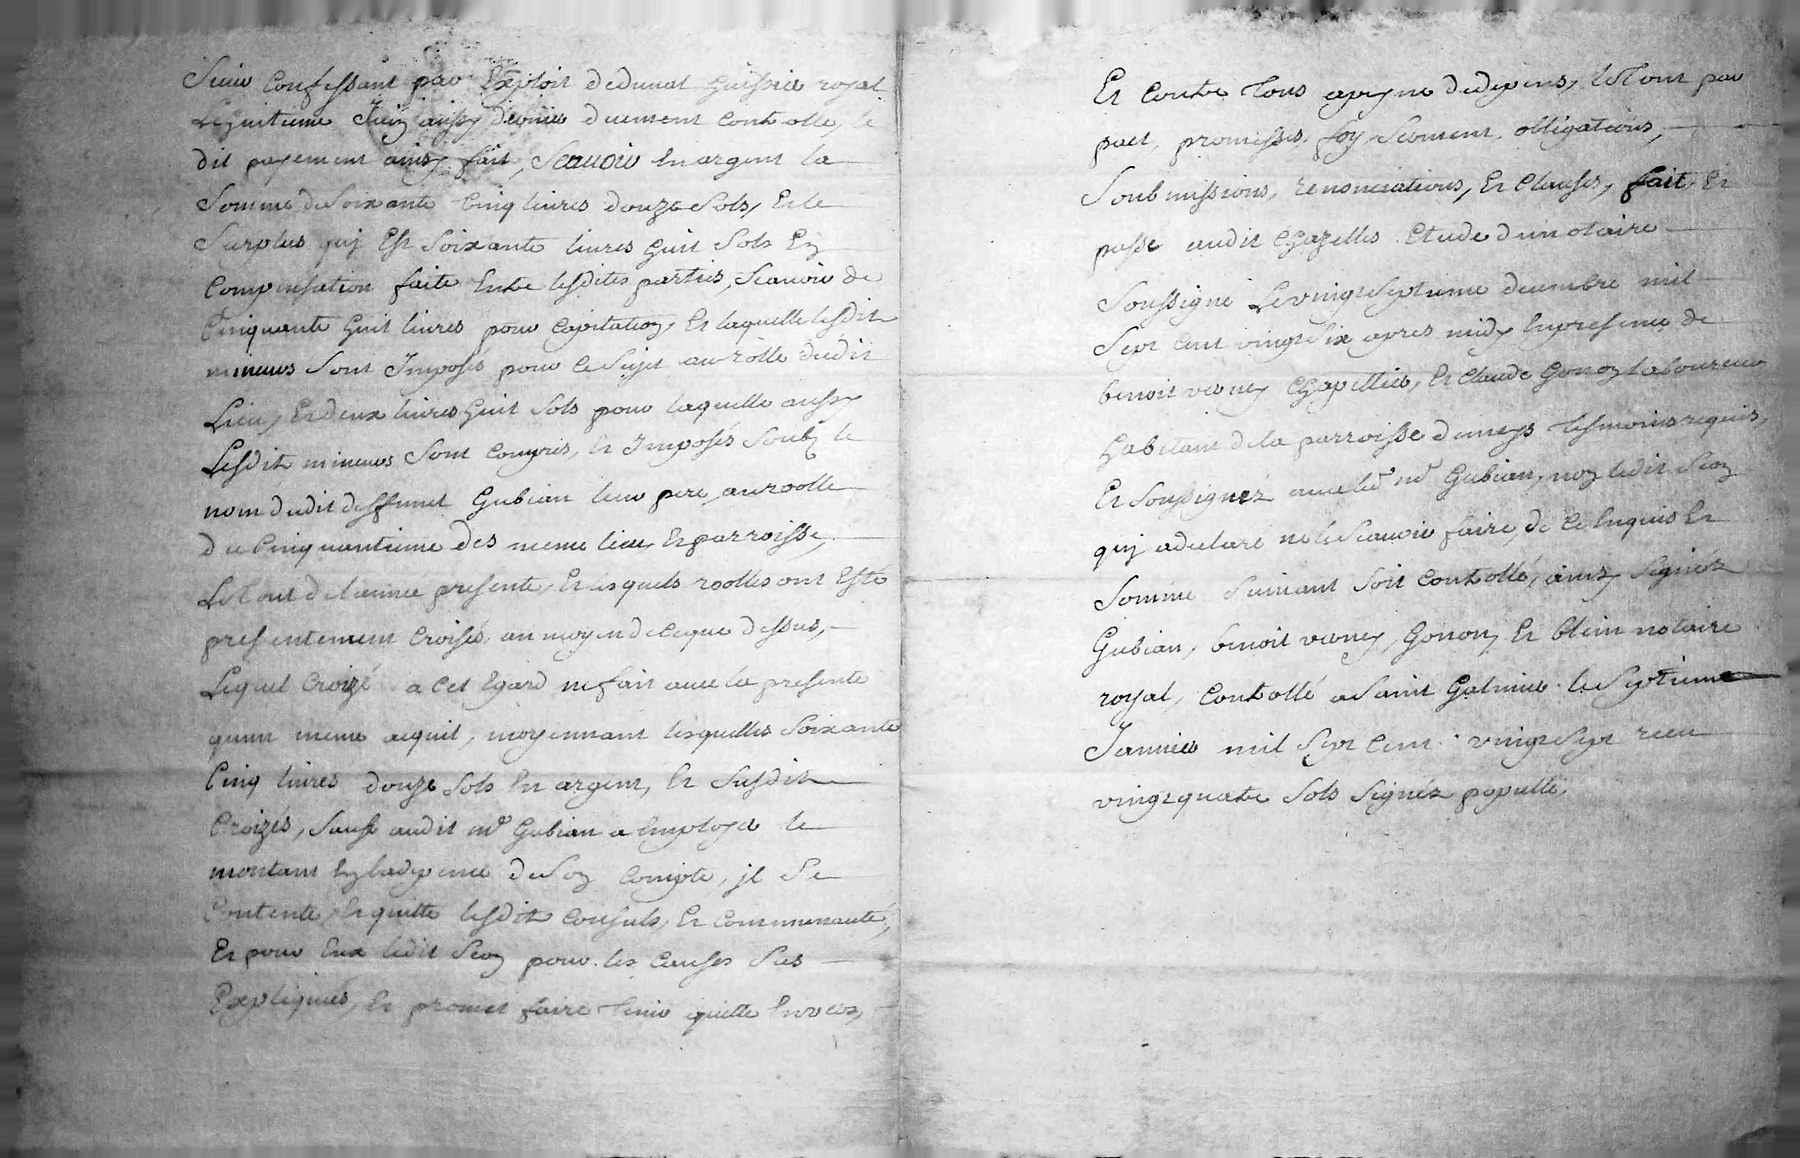 Suiv Confessant par Exploit dedunat huissier royal
Le huitieme Juin aussy dernier duement Controlle, le
dit payement ainsy fait, Scauoir En argent la
Somme de Soixante Cinq liures douze Sols, Et le
Surplus quj Est Soixante liures huit Sols En
Compensation faite Entre lesdites parties, Scauoir de
Cinquante huit liures pour Capitation, Et laquelle lesdits
mineurs Sont Imposés pour ce Sujet au rolle dudit
Lieu, Et deux liures huit Sols pour laquelle aussy
Lesdits mineurs Sont Compris, Et Imposés Soubs le
nom dudit deffunct Gubian leur pere, au roolle
du Cinquantieme des meme lieu Et parroisse,
Le Tout de l'année presente, Et lesquels roolles ont Esté
presentement Croisés au moyen de ce que dessus,
Lequel Croizé a cet Egard ne fait auec la presente
qu'un meme acquit, moyennant lesquelles Soixante
Cinq liures douze Sols En argent, Et Susdits
Croizés, Sauf audit mr Gubian a Employer le
montant En la depence de Son Compte, jl Se
Contente, Et quitte lesdits Consuls, Et Communauté,
Et pour Eux ledit Seon pour les Causes Sus
Expliquées, Et promet faire tenir quitte Enuers,
Et Contre Tous a peyne de depens, le Tout par
pact, promesses, foy, Serment, obligations,
Soubmissions, renonciations, Et Clauses, fait, Et
passé audit Chazelles Etude du notaire
Soussigné Le vingt Septieme decembre mil
Sept Cent vingt Six apres midy En presence de
benoit verney Chapellier, Et Claude Gonon Laboureur
habitant de la parroisse de meys tesmoins requis,
Et Soussignéz auec led mr Gubian, non ledit Seon
quj a declaré ne le Scauoir faire, de Ce Enquis Et
Sommé Suiuant Soit Controllé, ainsy Signéz
Gubian, benoit verney, Gonon, Et blein notaire
royal, Controllé a Saint Galmier le Septieme
Januier mil Sept Cent vingt Sept receu
vingt quatre Sols Signéz popullé.